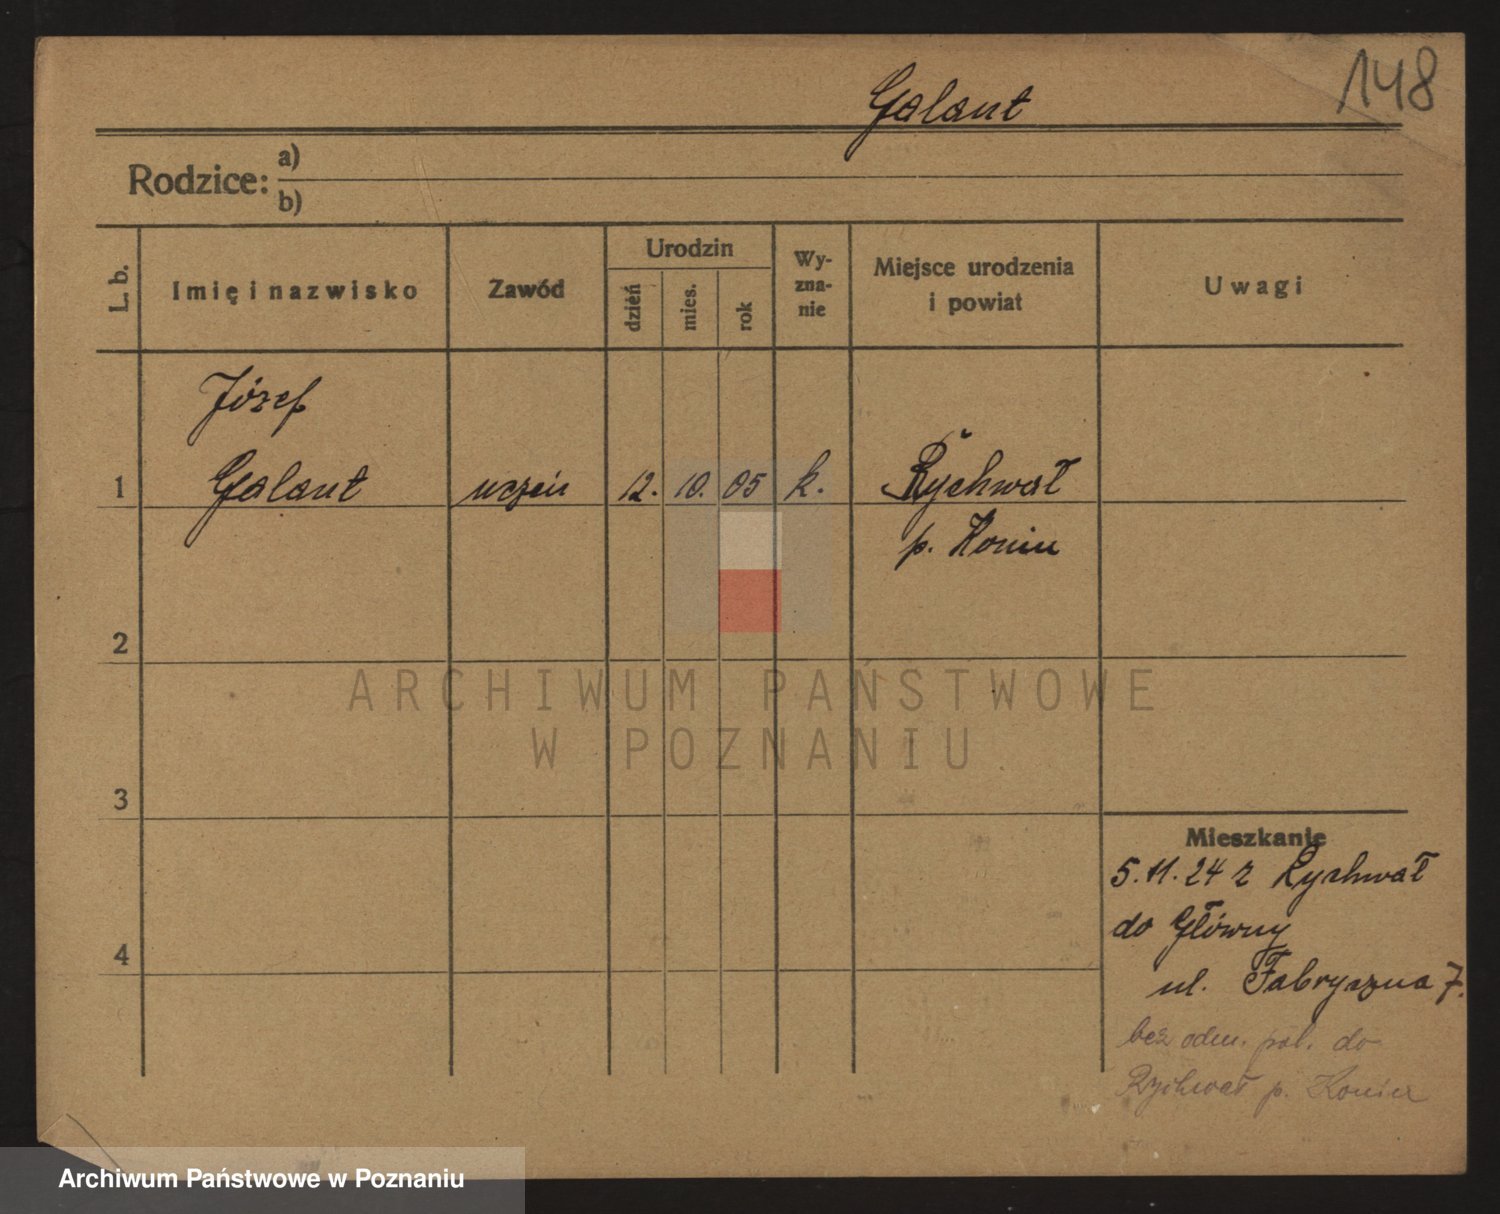 148
Galant
Rodzice: a)
b)
L. b.
Imię i nazwisko
Zawód
Urodzin
dzień
mies.
rok
Wy-
zna-
nie
Miejsce urodzenia
i powiat
Uwagi
Józef
1 Galant uczeń 12. 10. 05 k. Rychwał
p. Konin
2
3
4
Mieszkanie
5.11.24 z Rychwał
do Główny
ul. Fabryczna 7.
bez odm. pol. do
Rychwał p. Konin
ARCHIWUM PAŃSTWOWE
W POZNANIU
Archiwum Państwowe w Poznaniu